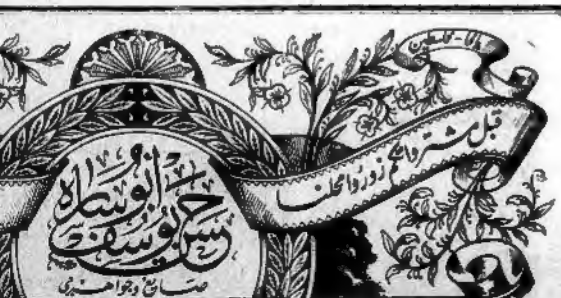 يافا - فلسطين
قبل مشتراكم زوروا محلنا
حسن يوسف
أبو ساره
صايغ وجواهرجي